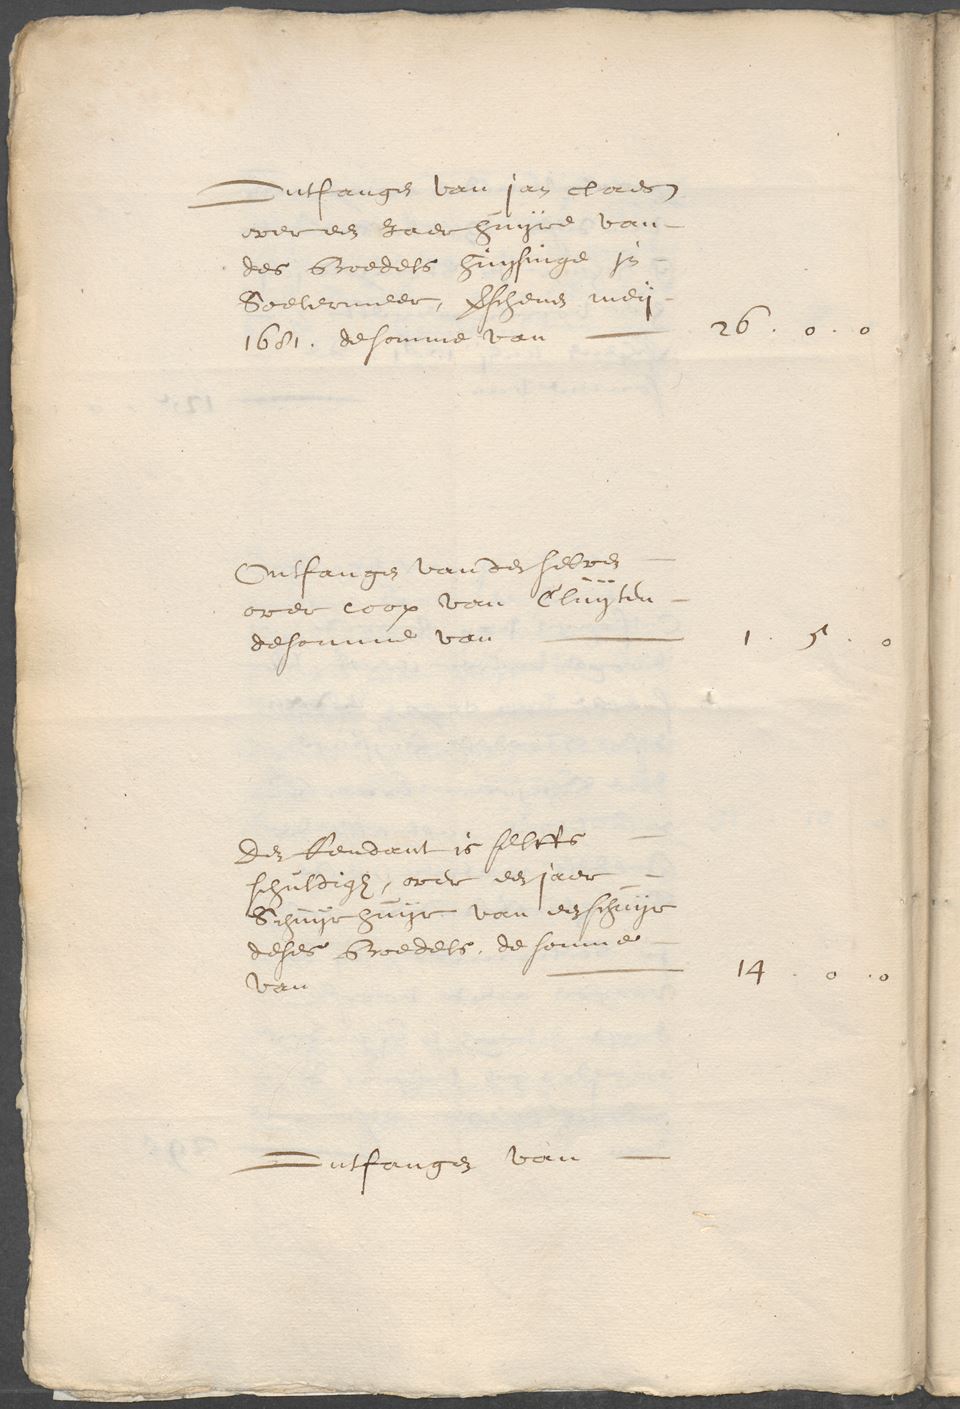 Ontfangen van jan claes
over een Jaer huÿre van
des boedels huÿsinge in
Soetermeer, verschenen meij
1681. de somme van 26. 0. 0
Ontfangen van denselven
over coop van Cluÿten
de somme van 1. 5. 0
Den Rendant is selffs
schuldigh, over een jaer
Schuÿrhuÿr van een schuÿr
deses boedels. de somme
van 14. 0. 0
Ontfangen van